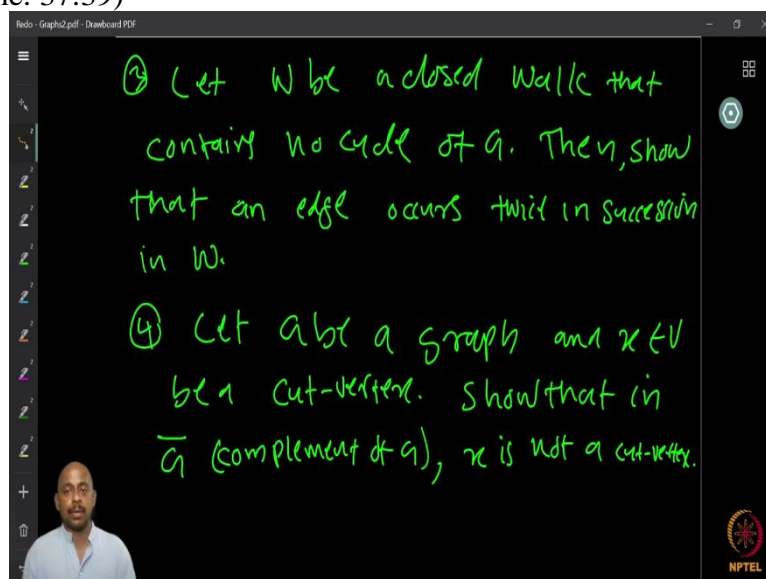 Redo - Graphs2.pdf - Drawboard PDF
③ Let W be a closed walk that
contains no cycle of G. Then, show
that an edge occurs twice in succession
in W.
④ Let G be a graph and x ∈ V
be a cut-vertex. Show that in
G̅ (complement of G), x is not a cut-vertex.
NPTEL